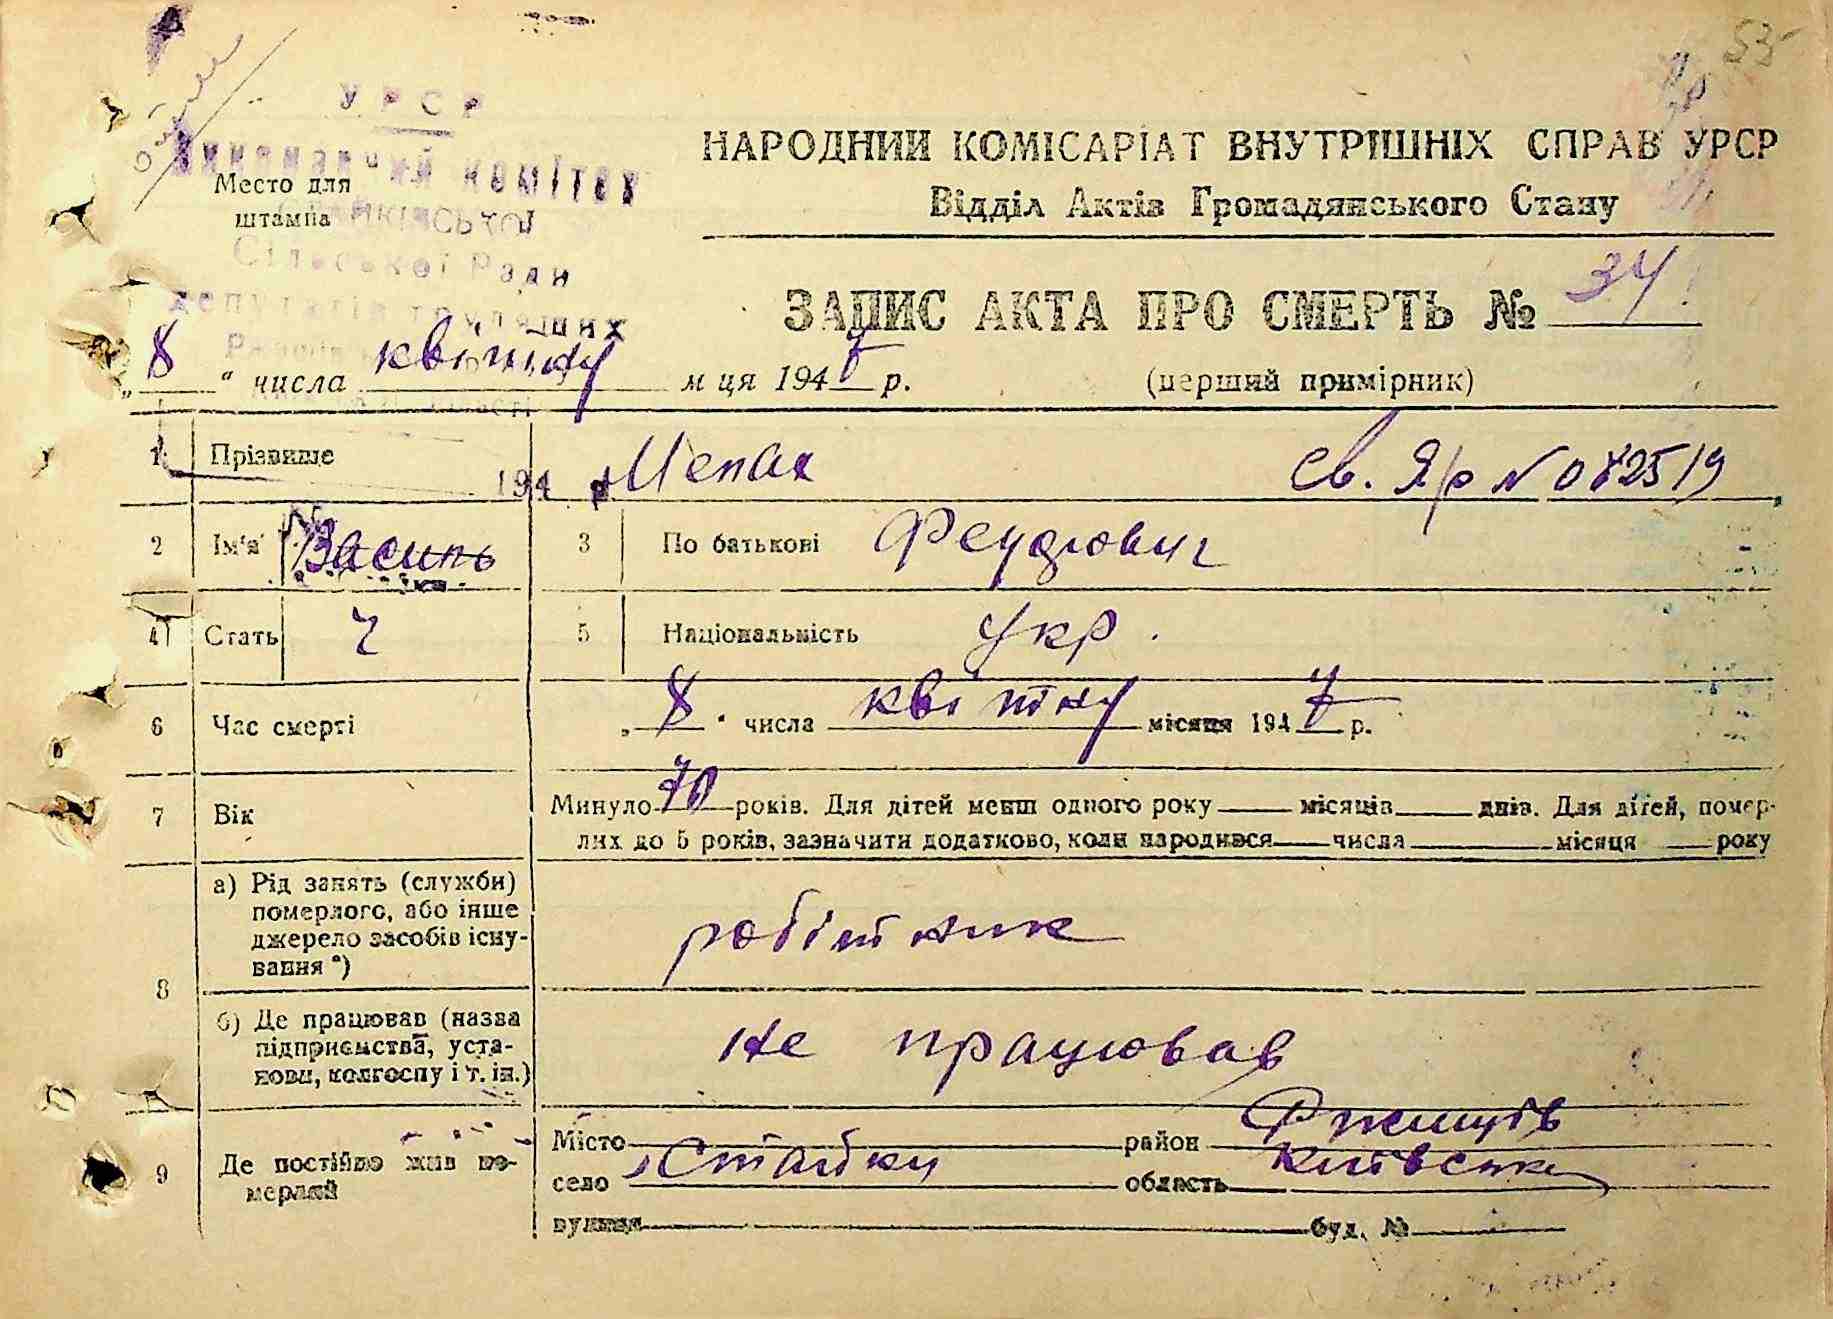 53
УРСР
Виконавчий комітет
Место для
штампа
Стайківської
Сільської Ради
депутатів трудящих
НАРОДНИЙ КОМІСАРІАТ ВНУТРІШНІХ СПРАВ УРСР
Відділ Актів Громадянського Стану
ЗАПИС АКТА ПРО СМЕРТЬ № 34
„8“ числа квітня м ця 1947 р. (перший примірник)
1 Прізвище Мепах Св. Яр № 082519
194 р
2 Ім'я Василь 3 По батькові
4 Стать Ч 5 Національність Укр.
6 Час смерті „8“ числа квітня місяця 1947 р.
7 Вік Минуло 70 років. Для дітей менш одного року місяців днів. Для дітей, помер-
лих до 5 років, зазначити додатково, коли народився числа місяця року
8 а) Рід занять (служби)
померлого, або інше
джерело засобів існу-
вання *)
робітник
б) Де працював (назва
підприємства, уста-
нови, колгоспу і т. ін.)
не працював
9 Де постійно жив по-
мерлий
Місто район Ржищів
село Стайки область Київська
вулиця буд. №